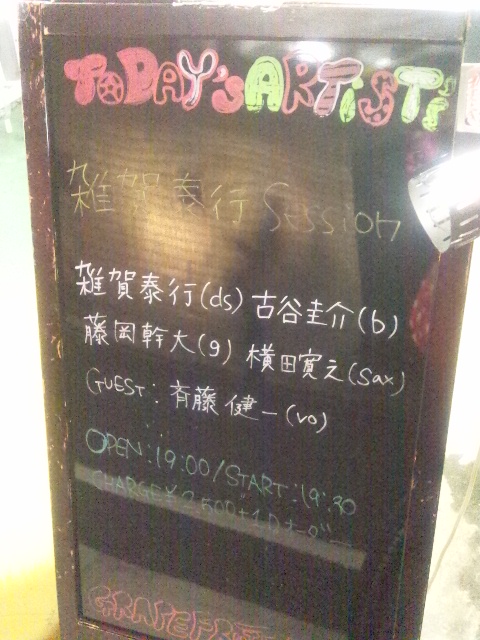 TODAY'S ARTIST
雑賀泰行 SESSION
雑賀泰行(ds) 古谷圭介(b)
藤岡幹大(g) 横田寛之(sax)
GUEST: 斉藤健一(vo)
OPEN:19:00/START:19:30
CHARGE¥2,500+1Dオーダー